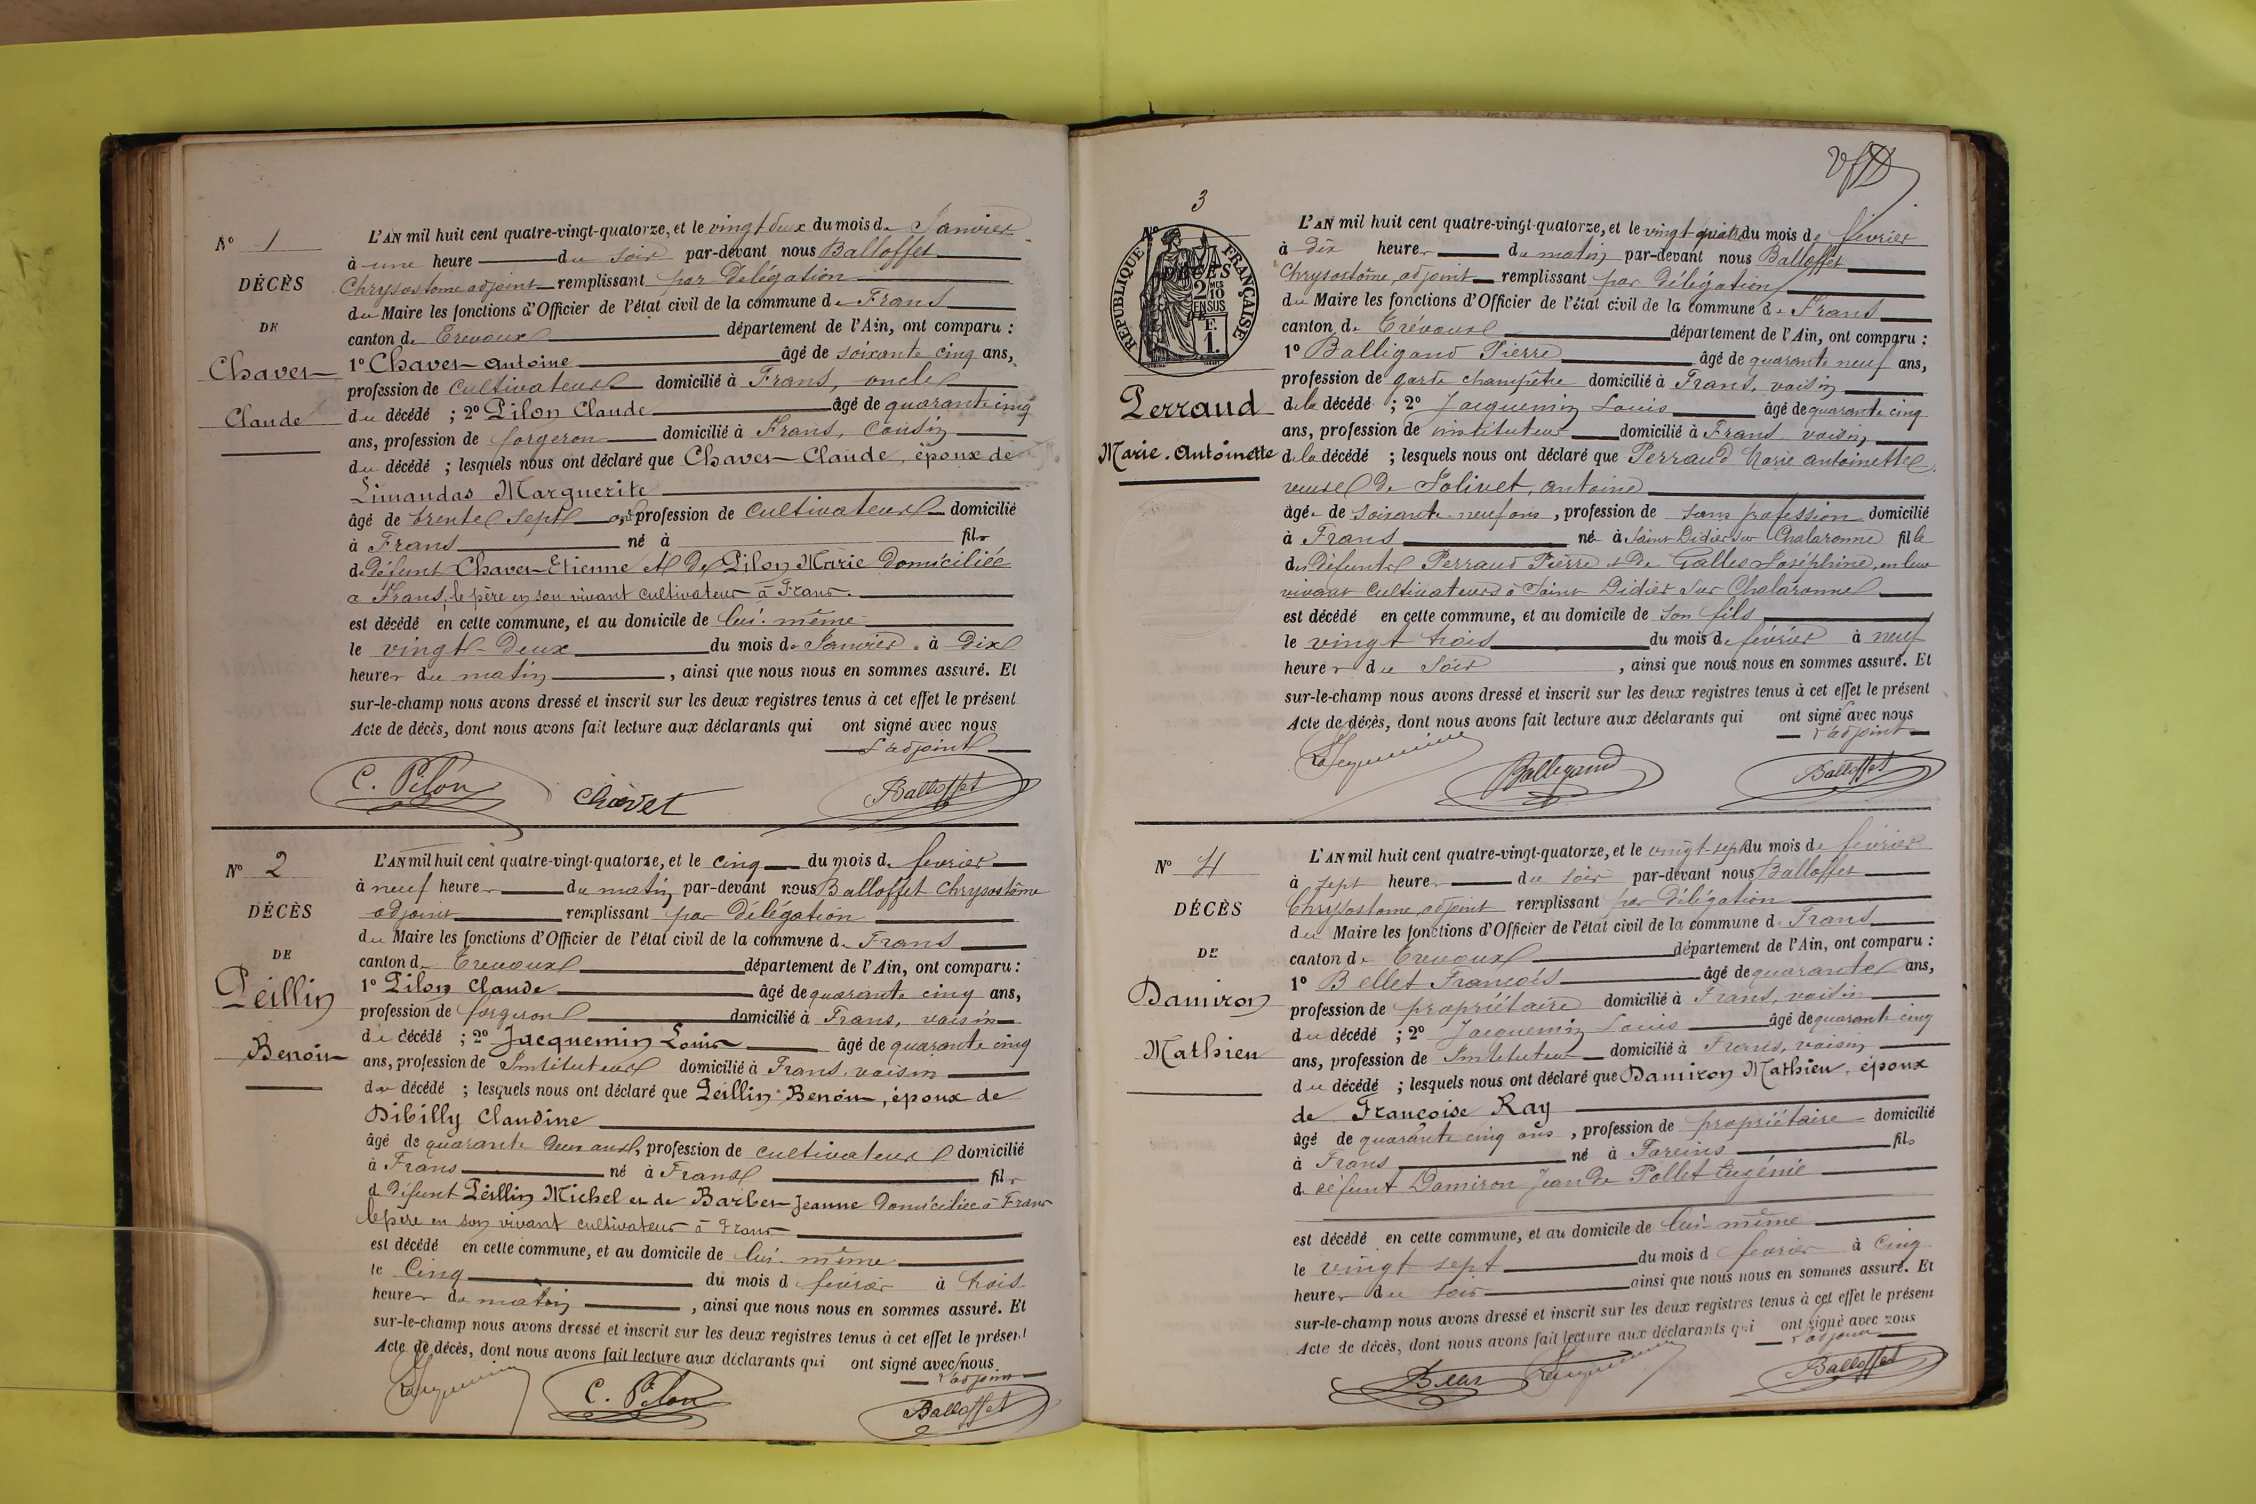 N° 1
DÉCÈS
DE
Chavet
Claude
L'AN mil huit cent quatre-vingt-quatorze, et le vingt deux du mois de Janvier
à une heure du soir par-devant nous Balloffet
Chrysostôme adjoint remplissant par Délégation
du Maire les fonctions d'Officier de l'état civil de la commune de Frans
canton de Trevoux département de l'Ain, ont comparu :
1° Chavet Antoine âgé de soixante cinq ans,
profession de cultivateur domicilié à Frans, oncle
du décédé ; 2° Pilon Claude âgé de quarante cinq
ans, profession de forgeron domicilié à Frans, cousin
du décédé ; lesquels nous ont déclaré que Chavet Claude, époux de
Limandas Marguerite
âgé de trente sept ans profession de cultivateur domicilié
à Frans né à fils
de défunt Chavet Etienne et de Pilon Marie domiciliée
à Frans, le père en son vivant cultivateur à Frans.
est décédé en cette commune, et au domicile de lui-même
le vingt-deux du mois de Janvier à dix
heures du matin, ainsi que nous nous en sommes assuré. Et
sur-le-champ nous avons dressé et inscrit sur les deux registres tenus à cet effet le présent
Acte de décès, dont nous avons fait lecture aux déclarants qui ont signé avec nous
l'adjoint
C. Pilon Chavet Balloffet
N° 2
DÉCÈS
DE
Peillin
Benoit
L'AN mil huit cent quatre-vingt-quatorze, et le cinq du mois de fevrier
à neuf heures du matin par-devant nous Balloffet Chrysostôme
adjoint remplissant par Délégation
du Maire les fonctions d'Officier de l'état civil de la commune de Frans
canton de Trevoux département de l'Ain, ont comparu :
1° Pilon Claude âgé de quarante cinq ans,
profession de forgeron domicilié à Frans, voisin
du décédé ; 2° Jacquemin Louis âgé de quarante cinq
ans, profession de Instituteur domicilié à Frans, voisin
du décédé ; lesquels nous ont déclaré que Peillin Benoit, époux de
Dibilly Claudine
âgé de quarante deux ans, profession de cultivateur domicilié
à Frans né à Frans fils
de défunt Peillin Michel et de Barbet Jeanne domiciliée à Frans
le père en son vivant cultivateur à Frans
est décédé en cette commune, et au domicile de lui-même
le Cinq du mois d février à trois
heures du matin, ainsi que nous nous en sommes assuré. Et
sur-le-champ nous avons dressé et inscrit sur les deux registres tenus à cet effet le présent
Acte de décès, dont nous avons fait lecture aux déclarants qui ont signé avec nous
l'adjoint
Jacquemin C. Pilon Balloffet
3
RÉPUBLIQUE FRANÇAISE
DÉCÈS
2 MES
10
EN SUS
F.
1.
Perraud
Marie-Antoinette
L'AN mil huit cent quatre-vingt-quatorze, et le vingt quatre du mois de février
à dix heures du matin par-devant nous Balloffet
Chrysostôme, adjoint remplissant par délégation
du Maire les fonctions d'Officier de l'état civil de la commune de Frans
canton de Trévoux département de l'Ain, ont comparu :
1° Balligand Pierre âgé de quarante neuf ans,
profession de garde champêtre domicilié à Frans, voisin
de la décédé ; 2° Jacquemin Louis âgé de quarante cinq
ans, profession de instituteur domicilié à Frans voisin
de la décédé ; lesquels nous ont déclaré que Perraud Marie Antoinette
veuve de Jolivet, Antoine
âgé de soixante-neuf ans, profession de sans profession domicilié
à Frans né à Saint Didier sur Chalaronne fille
des défunts Perraud Pierre et de Galles Joséphine, en leur
vivant cultivateurs à Saint Didier sur Chalaronne
est décédé en cette commune, et au domicile de son fils
le vingt trois du mois de février à neuf
heures du soir, ainsi que nous nous en sommes assuré. Et
sur-le-champ nous avons dressé et inscrit sur les deux registres tenus à cet effet le présent
Acte de décès, dont nous avons fait lecture aux déclarants qui ont signé avec nous
l'adjoint
Jacquemin Balligand Balloffet
N° 4
DÉCÈS
DE
Damiron
Mathieu
L'AN mil huit cent quatre-vingt-quatorze, et le vingt-sept du mois de février
à sept heures du soir par-devant nous Balloffet
Chrysostome, adjoint remplissant par délégation
du Maire les fonctions d'Officier de l'état civil de la commune de Frans
canton de Trevoux département de l'Ain, ont comparu :
1° Bellet François âgé de quarante ans,
profession de propriétaire domicilié à Frans, voisin
du décédé ; 2° Jacquemin Louis âgé de quarante cinq
ans, profession de Instituteur domicilié à Frans, voisin
du décédé ; lesquels nous ont déclaré que Damiron Mathieu, époux
de Françoise Ray
âgé de quarante cinq ans, profession de propriétaire domicilié
à Frans né à Fareins fils
de défunt Damiron Jean de Pollet Eugénie
est décédé en cette commune, et au domicile de lui-même
le vingt sept du mois d fevrier à Cinq
heures du soir ainsi que nous nous en sommes assuré. Et
sur-le-champ nous avons dressé et inscrit sur les deux registres tenus à cet effet le présent
Acte de décès, dont nous avons fait lecture aux déclarants qui ont signé avec nous
l'adjoint
Jacquemin Balloffet